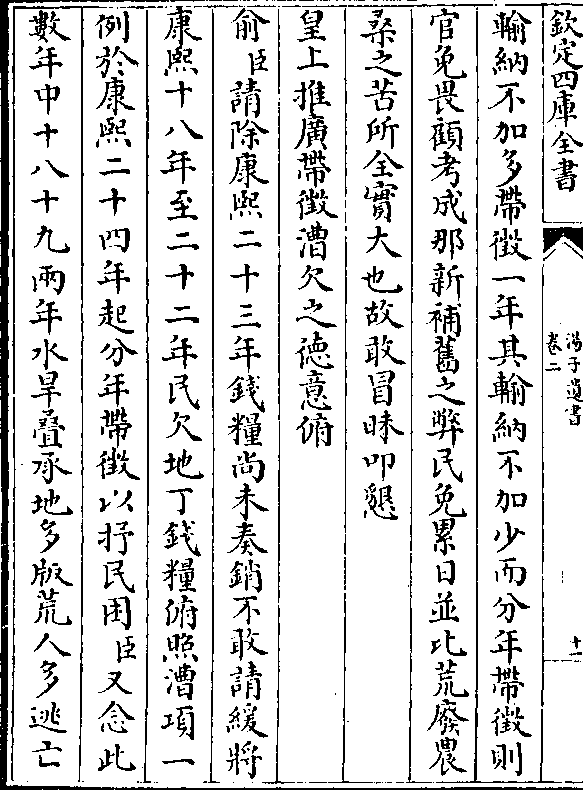 欽定四庫全書
湯子遺書
卷二
十一
輸納不加多帶徵一年其輸納不加少而分年帶徵則
官免畏顧考成那新補舊之弊民免累日並比荒廢農
桑之苦所全實大也故敢冒昧叩懇
皇上推廣帶徵漕欠之德意俯
俞臣請除康熙二十三年錢糧尚未奏銷不敢請緩將
康熙十八年至二十二年民欠地丁錢糧俯照漕項一
例於康熙二十四年起分年帶徵以抒民困臣又念此
數年中十八十九兩年水旱疊承地多版荒人多逃亡